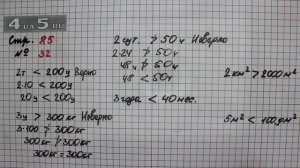 4DA5.RU
Стр. 85
№ 32
2т < 200ц Верно
2·10 < 200ц
20ц < 200ц
3ц > 300кг Неверно
3·100 ≯ 300кг
300кг ≯ 300кг
300кг = 300кг
2 сут. ≯ 50ч Неверно
2·24 ≯ 50ч
48ч ≯ 50ч
48 < 50ч
3 года < 40 мес.
2км² > 2000м²
5м² < 100дм²